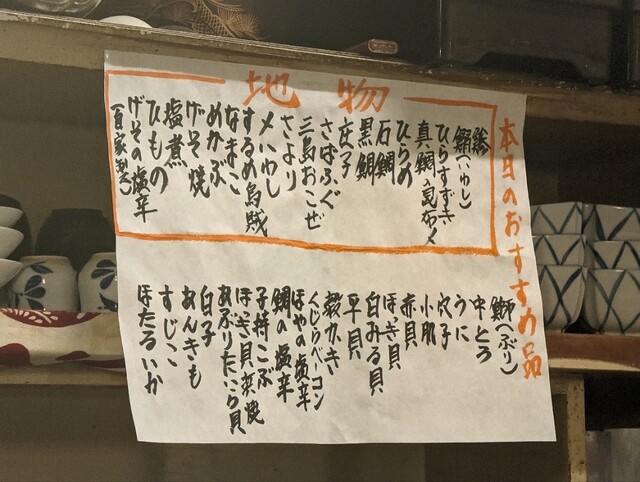 本日のおすすめ品
地物
鯵
鰯(いわし)
ひらすずき
真鯛昆布〆
ひらめ
石鯛
黒鯛
さばふぐ
三島おこぜ
さより
〆いわし
するめ烏賊
なまこ
めかぶ
げそ焼
塩煮
ひもの
げその塩辛
(自家製)
鰤(ぶり)
中とろ
うに
穴子
小肌
赤貝
ほっき貝
白みる貝
平貝
殻かき
くじらベーコン
ほやの塩辛
鯛の塩辛
子持こぶ
ほっき貝 焼
あぶりたいら貝
白子
あんきも
すじこ
ほたるいか